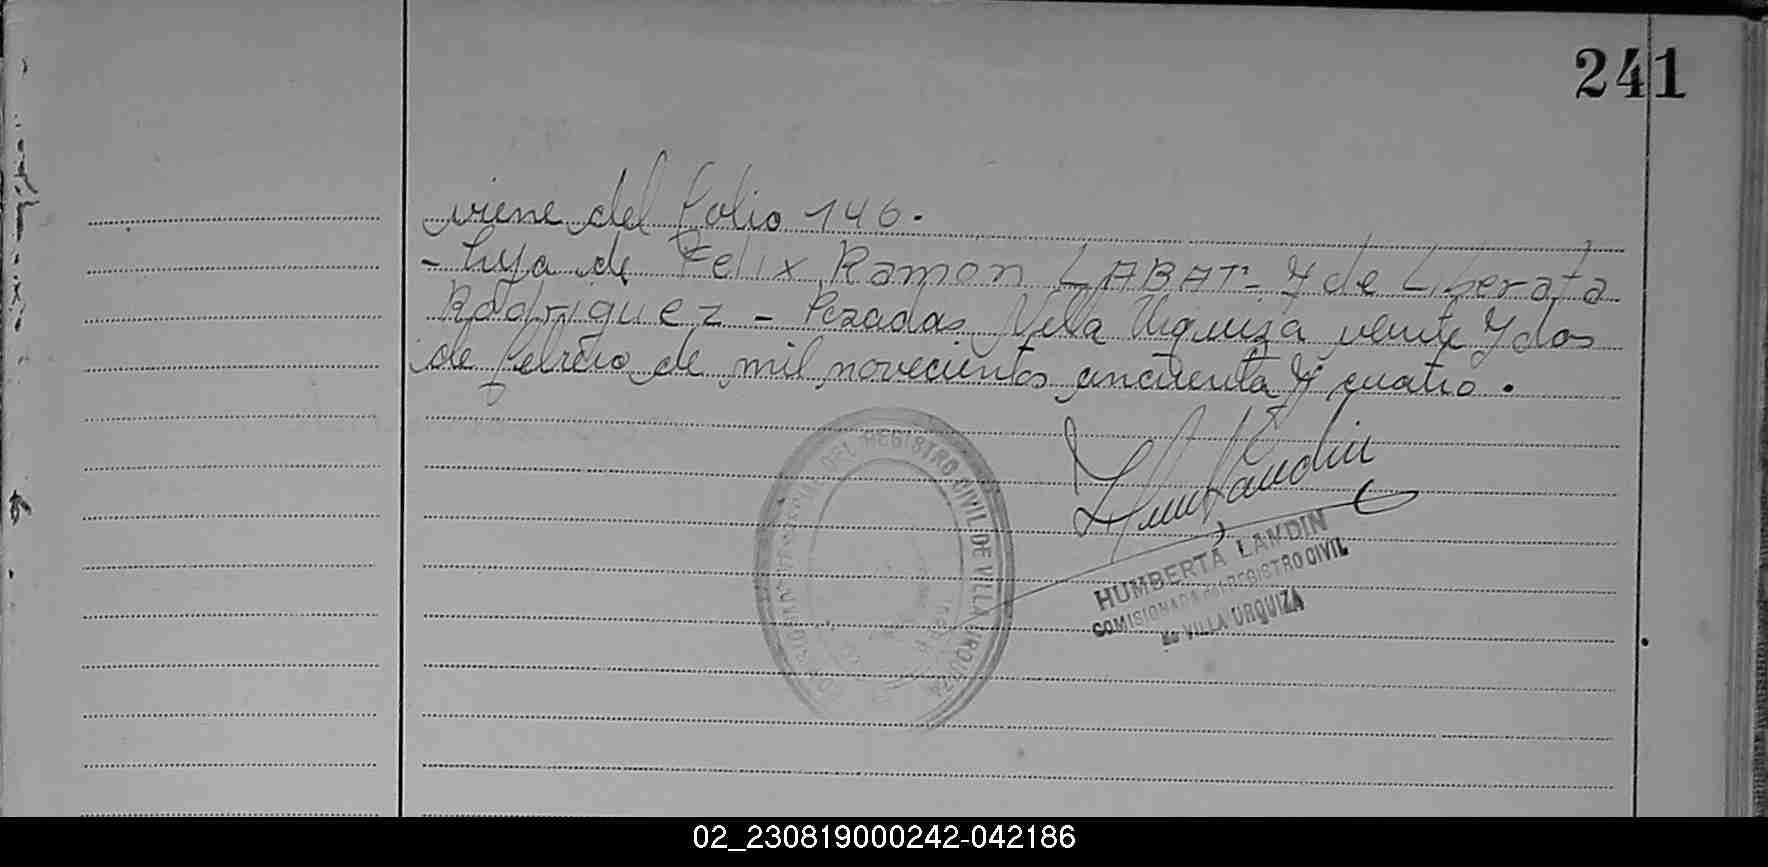 241
viene del folio 146.
- hija de Felix Ramon LABAT- y de Liberata
Rodriguez - Villa Urquiza veinte y dos
de febrero de mil novecientos cincuenta y cuatro.
DEL REGISTRO CIVIL DE VILLA URQUIZA
HUMBERTA LANDIN
COMISIONADA del REGISTRO CIVIL
de VILLA URQUIZA
02_230819000242-042186